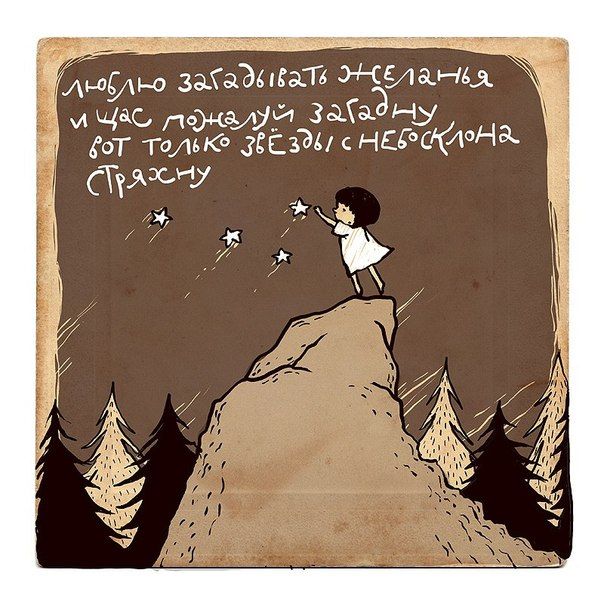 люблю загадывать желанья
и щас пожалуй загадну
вот только звёзды с небосклона
стряхну